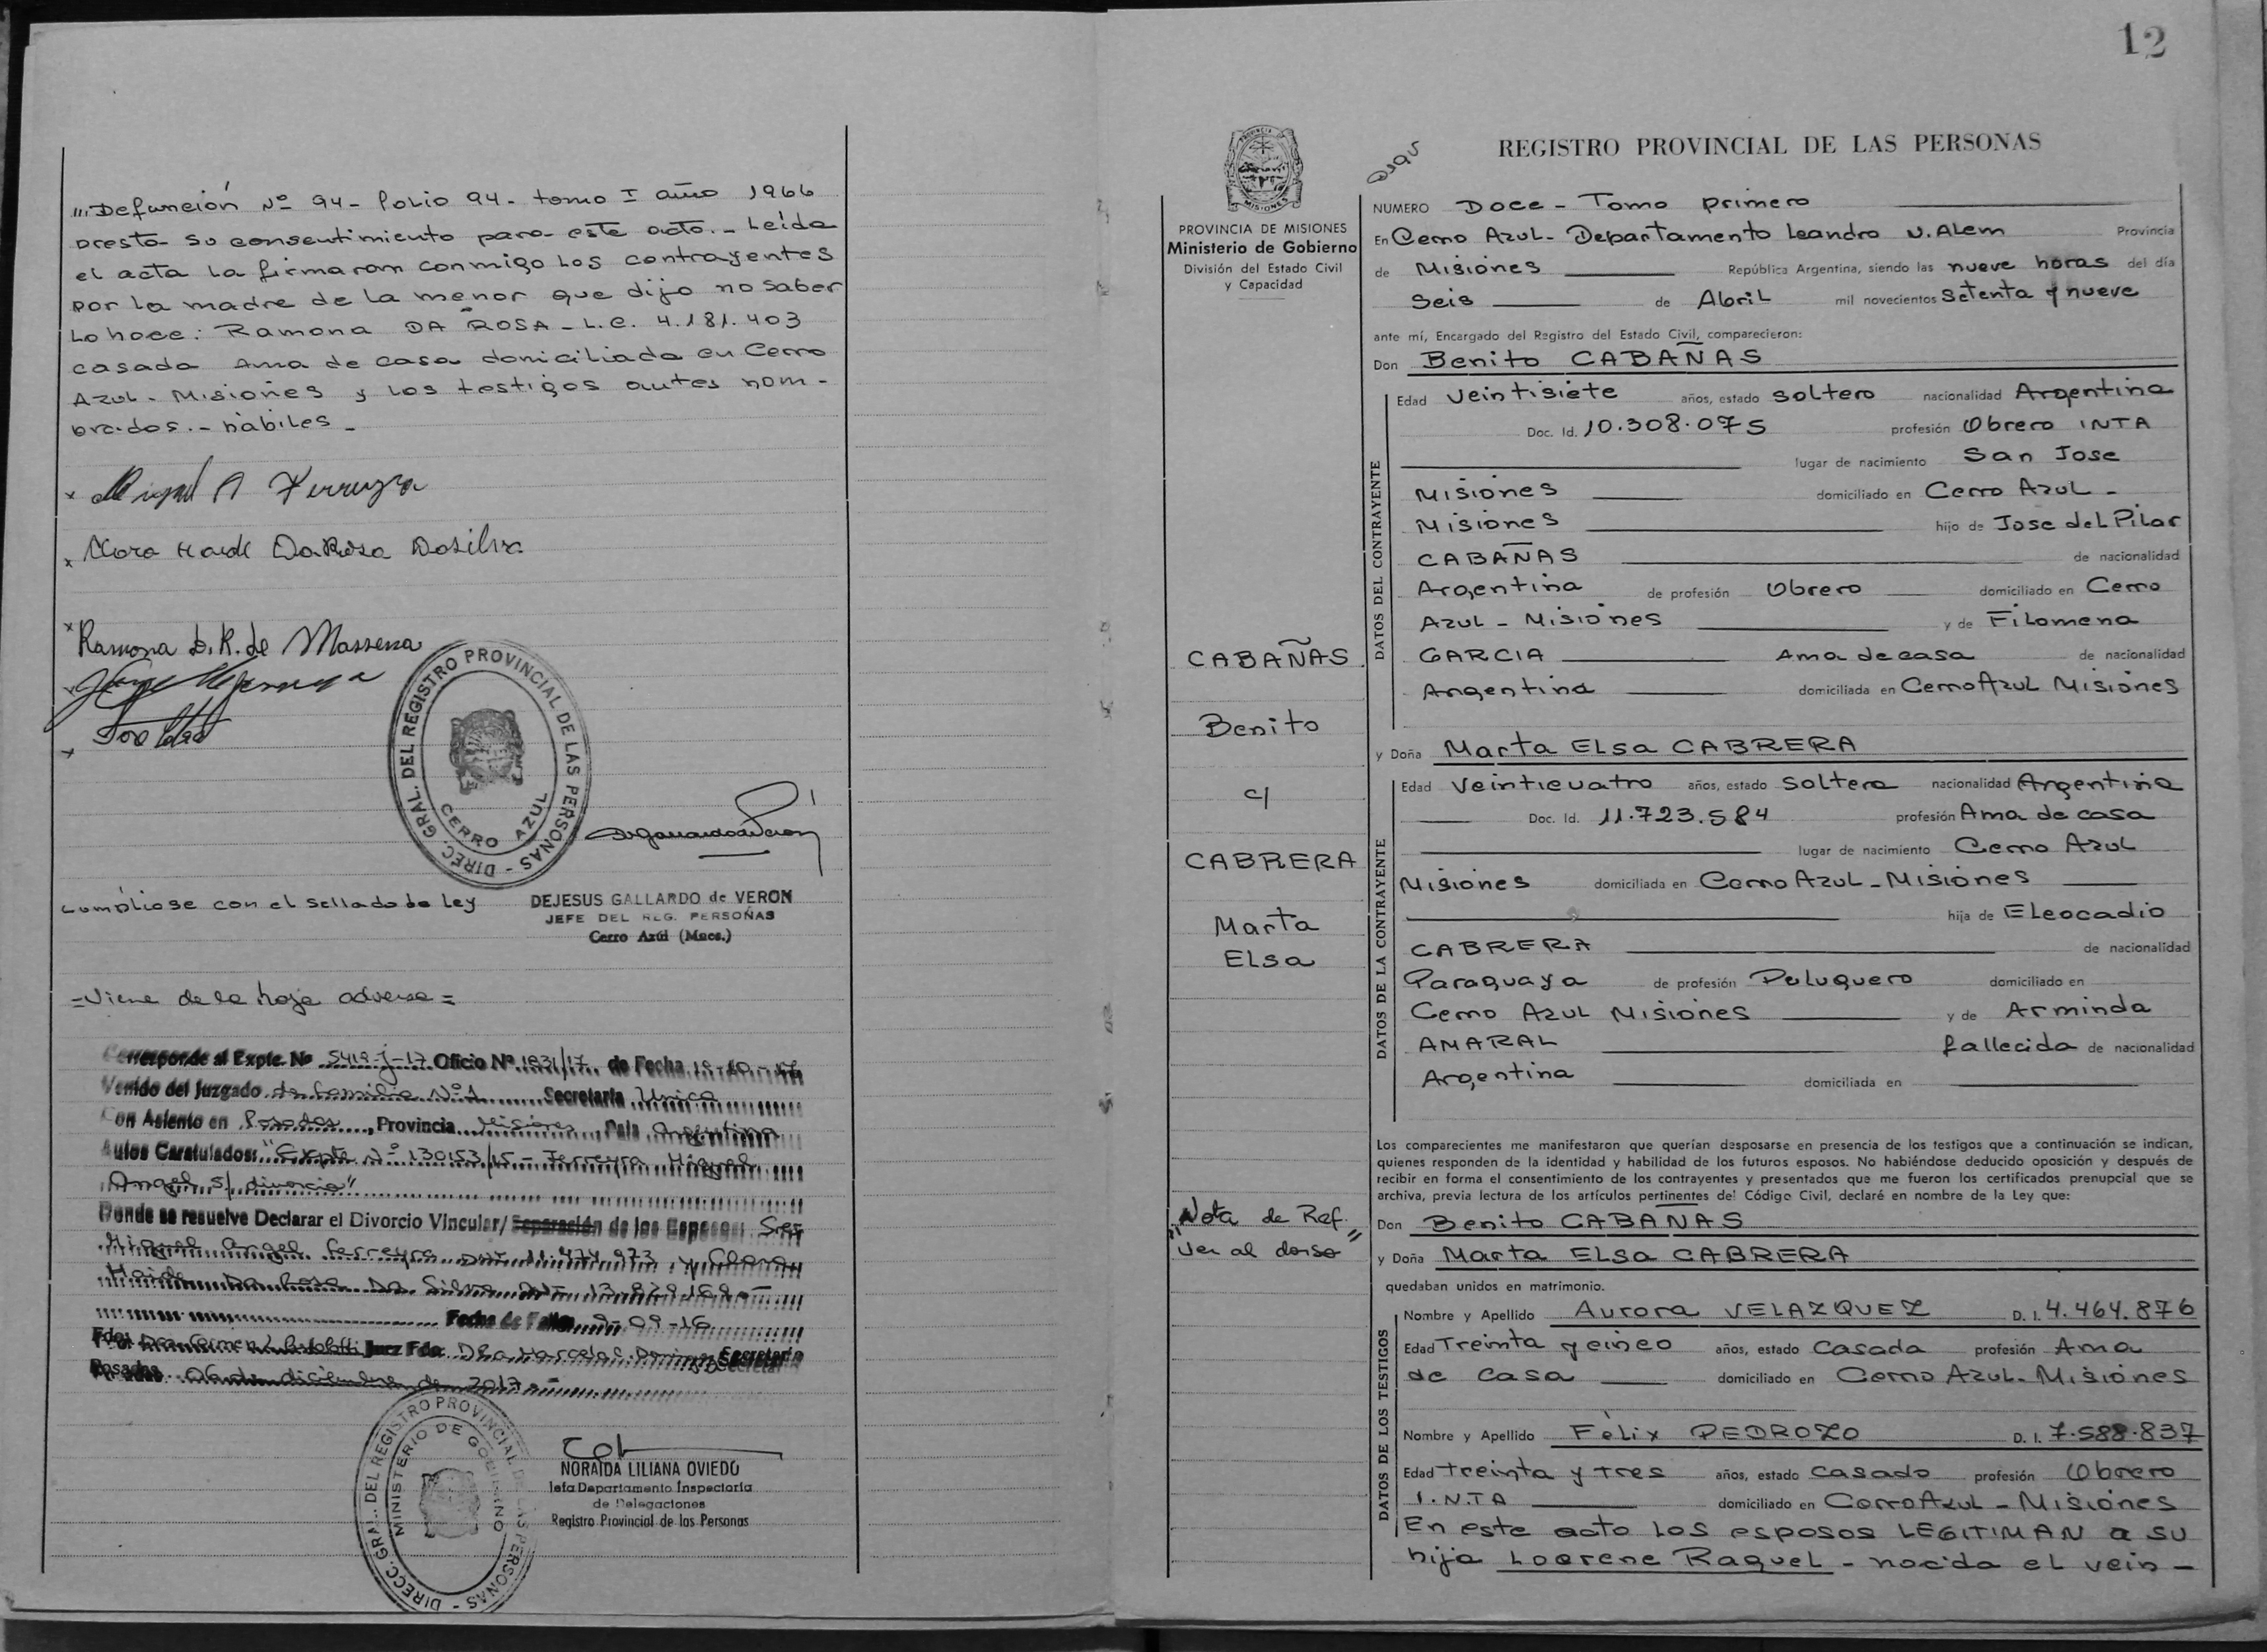 "'Defunción Nº 94 - Folio 94 - tomo I año 1966
presta su consentimiento para este acto. - Leída
el acta la firmaron conmigo los contrayentes
por la madre de la menor que dijo no saber
lo hace: Ramona DA ROSA - L.C. 4.181.403
casada Ama de casa domiciliada en Cerro
Azul - Misiones y los testigos antes nom-
brados. - hábiles -
x Miguel A Ferreyra
x Clara Haide DaRosa Dasilva
x Ramona D.R. de Massena
x
x
DIREC. GRAL. DEL REGISTRO PROVINCIAL DE LAS PERSONAS -
CERRO AZUL
Cúmpliose con el sellado de Ley
DEJESUS GALLARDO de VERON
JEFE DEL REG. PERSONAS
Cerro Azúl (Mnes.)
=Viene de la hoja adversa=
Corresponde al Expte. Nº 5419-J-17 Oficio Nº 1831/17 de Fecha 19-10-17
Venido del Juzgado de Familia Nº 1 Secretaria Unica
Con Asiento en Posadas, Provincia Misiones, Pais Argentina
Autos Caratulados: "Expte Nº 130153/15 - Ferreyra Miguel
Angel s/ divorcio"
Donde se resuelve Declarar el Divorcio Vincular/ Separación de los Esposos: Sres
Miguel Angel Ferreyra DNI 11.474.973 y Clara
Haide Da Rosa Da Silva DNI 13.829.169.-
Fecha de Fallo 9-09-16
Fdo: Dra Carmen Juez Fdo. Dra Marcela C. Secretario
Posadas 06 de diciembre de 2017.-
DIRECC. GRAL. DEL REGISTRO PROVINCIAL DE LAS PERSONAS -
MINISTERIO DE GOBIERNO
NORAIDA LILIANA OVIEDO
Jefa Departamento Inspectoría
de Delegaciones
Registro Provincial de las Personas
12
PROVINCIA DE MISIONES
Ministerio de Gobierno
División del Estado Civil
y Capacidad
CABAÑAS
Benito
c/
CABRERA
Marta
Elsa
"Nota de Ref.
Ver al dorso"
REGISTRO PROVINCIAL DE LAS PERSONAS
NUMERO Doce - Tomo primero
En Cerro Azul - Departamento Leandro N. Alem Provincia
de Misiones República Argentina, siendo las nueve horas del día
Seis de Abril mil novecientos setenta y nueve
ante mí, Encargado del Registro del Estado Civil, comparecieron:
Don Benito CABAÑAS
DATOS DEL CONTRAYENTE
Edad veintisiete años, estado soltero nacionalidad Argentina
Doc. Id. 10.308.075 profesión Obrero INTA
lugar de nacimiento San Jose
Misiones domiciliado en Cerro Azul -
Misiones hijo de Jose del Pilar
CABAÑAS de nacionalidad
Argentina de profesión Obrero domiciliado en Cerro
Azul - Misiones y de Filomena
GARCIA Ama de casa de nacionalidad
Argentina domiciliada en Cerro Azul Misiones
y Doña Marta Elsa CABRERA
DATOS DE LA CONTRAYENTE
Edad veinticuatro años, estado soltera nacionalidad Argentina
Doc. Id. 11.723.584 profesión Ama de casa
lugar de nacimiento Cerro Azul
Misiones domiciliada en Cerro Azul - Misiones
hija de Eleocadio
CABRERA de nacionalidad
Paraguaya de profesión Peluquero domiciliado en
Cerro Azul Misiones y de Arminda
AMARAL fallecida de nacionalidad
Argentina domiciliada en
Los comparecientes me manifestaron que querían desposarse en presencia de los testigos que a continuación se indican,
quienes responden de la identidad y habilidad de los futuros esposos. No habiéndose deducido oposición y después de
recibir en forma el consentimiento de los contrayentes y presentados que me fueron los certificados prenupcial que se
archiva, previa lectura de los artículos pertinentes del Código Civil, declaré en nombre de la Ley que:
Don Benito CABAÑAS
y Doña Marta Elsa CABRERA
quedaban unidos en matrimonio.
DATOS DE LOS TESTIGOS
Nombre y Apellido Aurora VELAZQUEZ D. I. 4.464.876
Edad Treinta y cinco años, estado casada profesión Ama
de casa domiciliado en Cerro Azul - Misiones
Nombre y Apellido Félix PEDROZO D. I. 7.588.837
Edad treinta y tres años, estado casado profesión Obrero
I.N.T.A domiciliado en Cerro Azul - Misiones
En este acto los esposos LEGITIMAN a su
hija Loorene Raquel - nacida el vein-